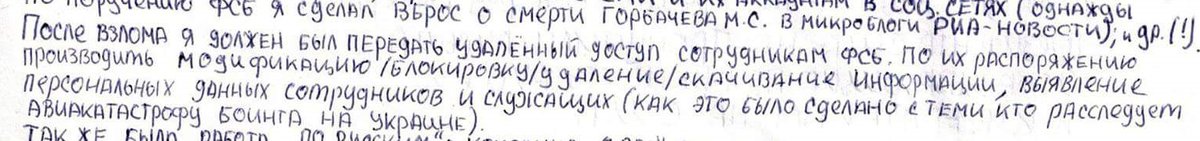 ПО ПОРУЧЕНИЮ ФСБ Я СДЕЛАЛ ВБРОС О СМЕРТИ ГОРБАЧЕВА М.С. В МИКРОБЛОГИ РИА-НОВОСТИ); и др.(!)
ПОСЛЕ ВЗЛОМА Я ДОЛЖЕН БЫЛ ПЕРЕДАТЬ УДАЛЁННЫЙ ДОСТУП СОТРУДНИКАМ ФСБ. ПО ИХ РАСПОРЯЖЕНИЮ
ПРОИЗВОДИТЬ МОДИФИКАЦИЮ/БЛОКИРОВКУ/УДАЛЕНИЕ/СКАЧИВАНИЕ ИНФОРМАЦИИ, ВЫЯВЛЕНИЕ
ПЕРСОНАЛЬНЫХ ДАННЫХ СОТРУДНИКОВ И СЛУЖАЩИХ (КАК ЭТО БЫЛО СДЕЛАНО С ТЕМИ КТО РАССЛЕДУЕТ
АВИАКАТАСТРОФУ БОИНГА НА УКРАИНЕ).
ТАК ЖЕ БЫЛА РАБОТА ПО